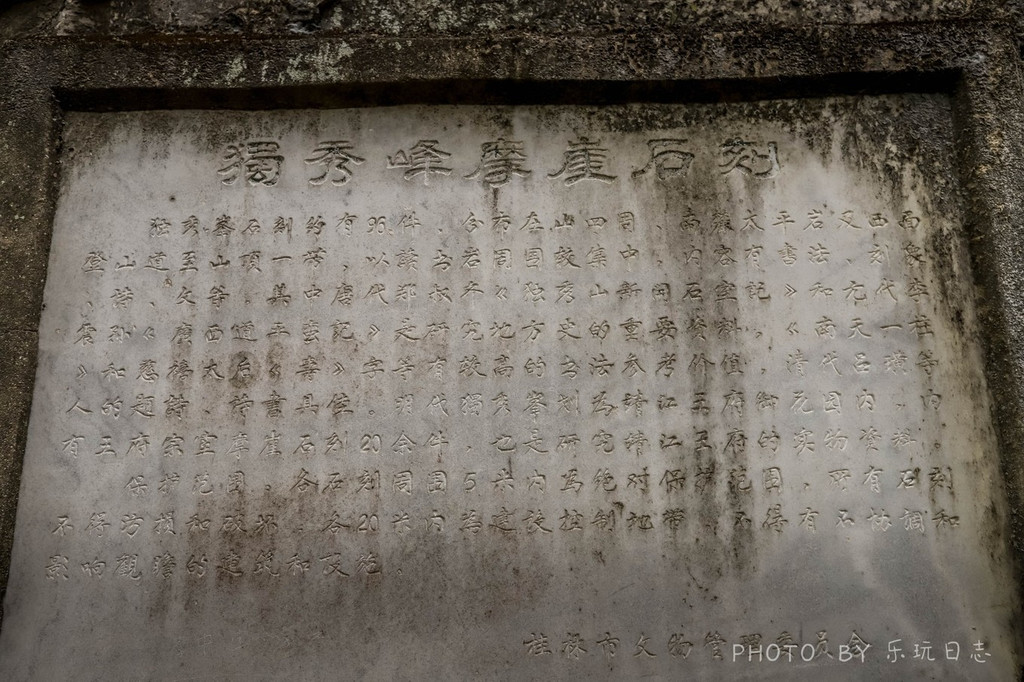 獨秀峰摩崖石刻
独秀峯石刻约有95件,分布在山四周、南麓太平岩又西而
登山道至山項一带,以读书岩周围较集中,内容有書法、刻
、詩、文等,其中唐代郑叔齐《独秀山新開石室記》和
震孙《廣西道平蛮記》之研究地方史的重要資料,《南天一柱
》和慈禧太后《壽》字等有較高的書法参考价值,清代吕璜等
人的題詩、詩書具佳。明代獨秀峯刻为靖江王府御園内,
有王府宗室摩崖石刻20余件,也是研究靖江王府的实物資料。
保护范围,各石刻周围5米内爲绝对保护范围,所有石刻
不得污損和破坏,各20米内為建設控制地带,不得有不协調和
影响觀瞻的建筑和设施.
桂林市文物管理委员会
PHOTO BY 乐玩日志